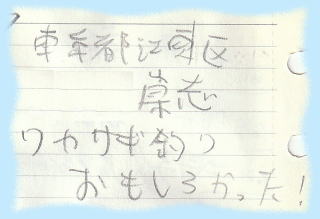 東京都江東区
崇志
ワカサギ釣り
おもしろかった!